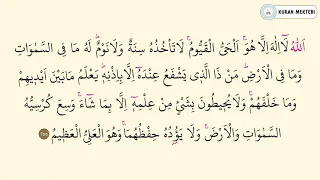 KURAN MEKTEBİ
اَللّٰهُ لَٓا اِلٰهَ اِلَّا هُوَۚ اَلْحَيُّ الْقَيُّومُۚ لَا تَأْخُذُهُ سِنَةٌ وَلَا نَوْمٌۜ لَهُ مَا فِي السَّمٰوَاتِ
وَمَا فِي الْاَرْضِۜ مَنْ ذَا الَّذ۪ي يَشْفَعُ عِنْدَهُٓ اِلَّا بِاِذْنِه۪ۜ يَعْلَمُ مَا بَيْنَ اَيْد۪يهِمْ
وَمَا خَلْفَهُمْۚ وَلَا يُح۪يطُونَ بِشَيْءٍ مِنْ عِلْمِه۪ٓ اِلَّا بِمَا شَٓاءَۚ وَسِعَ كُرْسِيُّهُ
السَّمٰوَاتِ وَالْاَرْضَۚ وَلَا يَؤُ۫دُهُ حِفْظُهُمَاۚ وَهُوَ الْعَلِيُّ الْعَظ۪يمُ